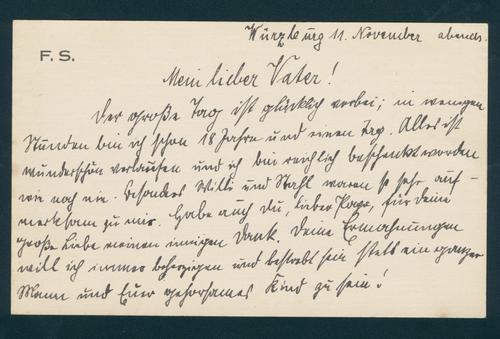 Würzburg 11. November abends.
F. S.
Mein lieber Vater!
Der große Tag ist glücklich vorbei; in wenigen
Stunden bin ich schon 18 Jahre und einen Tag. Alles ist
wunderschön verlaufen und ich bin reichlich beschenkt worden
wie noch nie. Besonders Willi und Stahl waren so sehr auf-
merksam zu mir. Habe auch du, lieber Papa, für deine
große Liebe meinen innigen Dank. Deine Ermahnungen
will ich immer beherzigen und bestrebt sein stets ein ganzer
Mann und Euer gehorsames Kind zu sein!